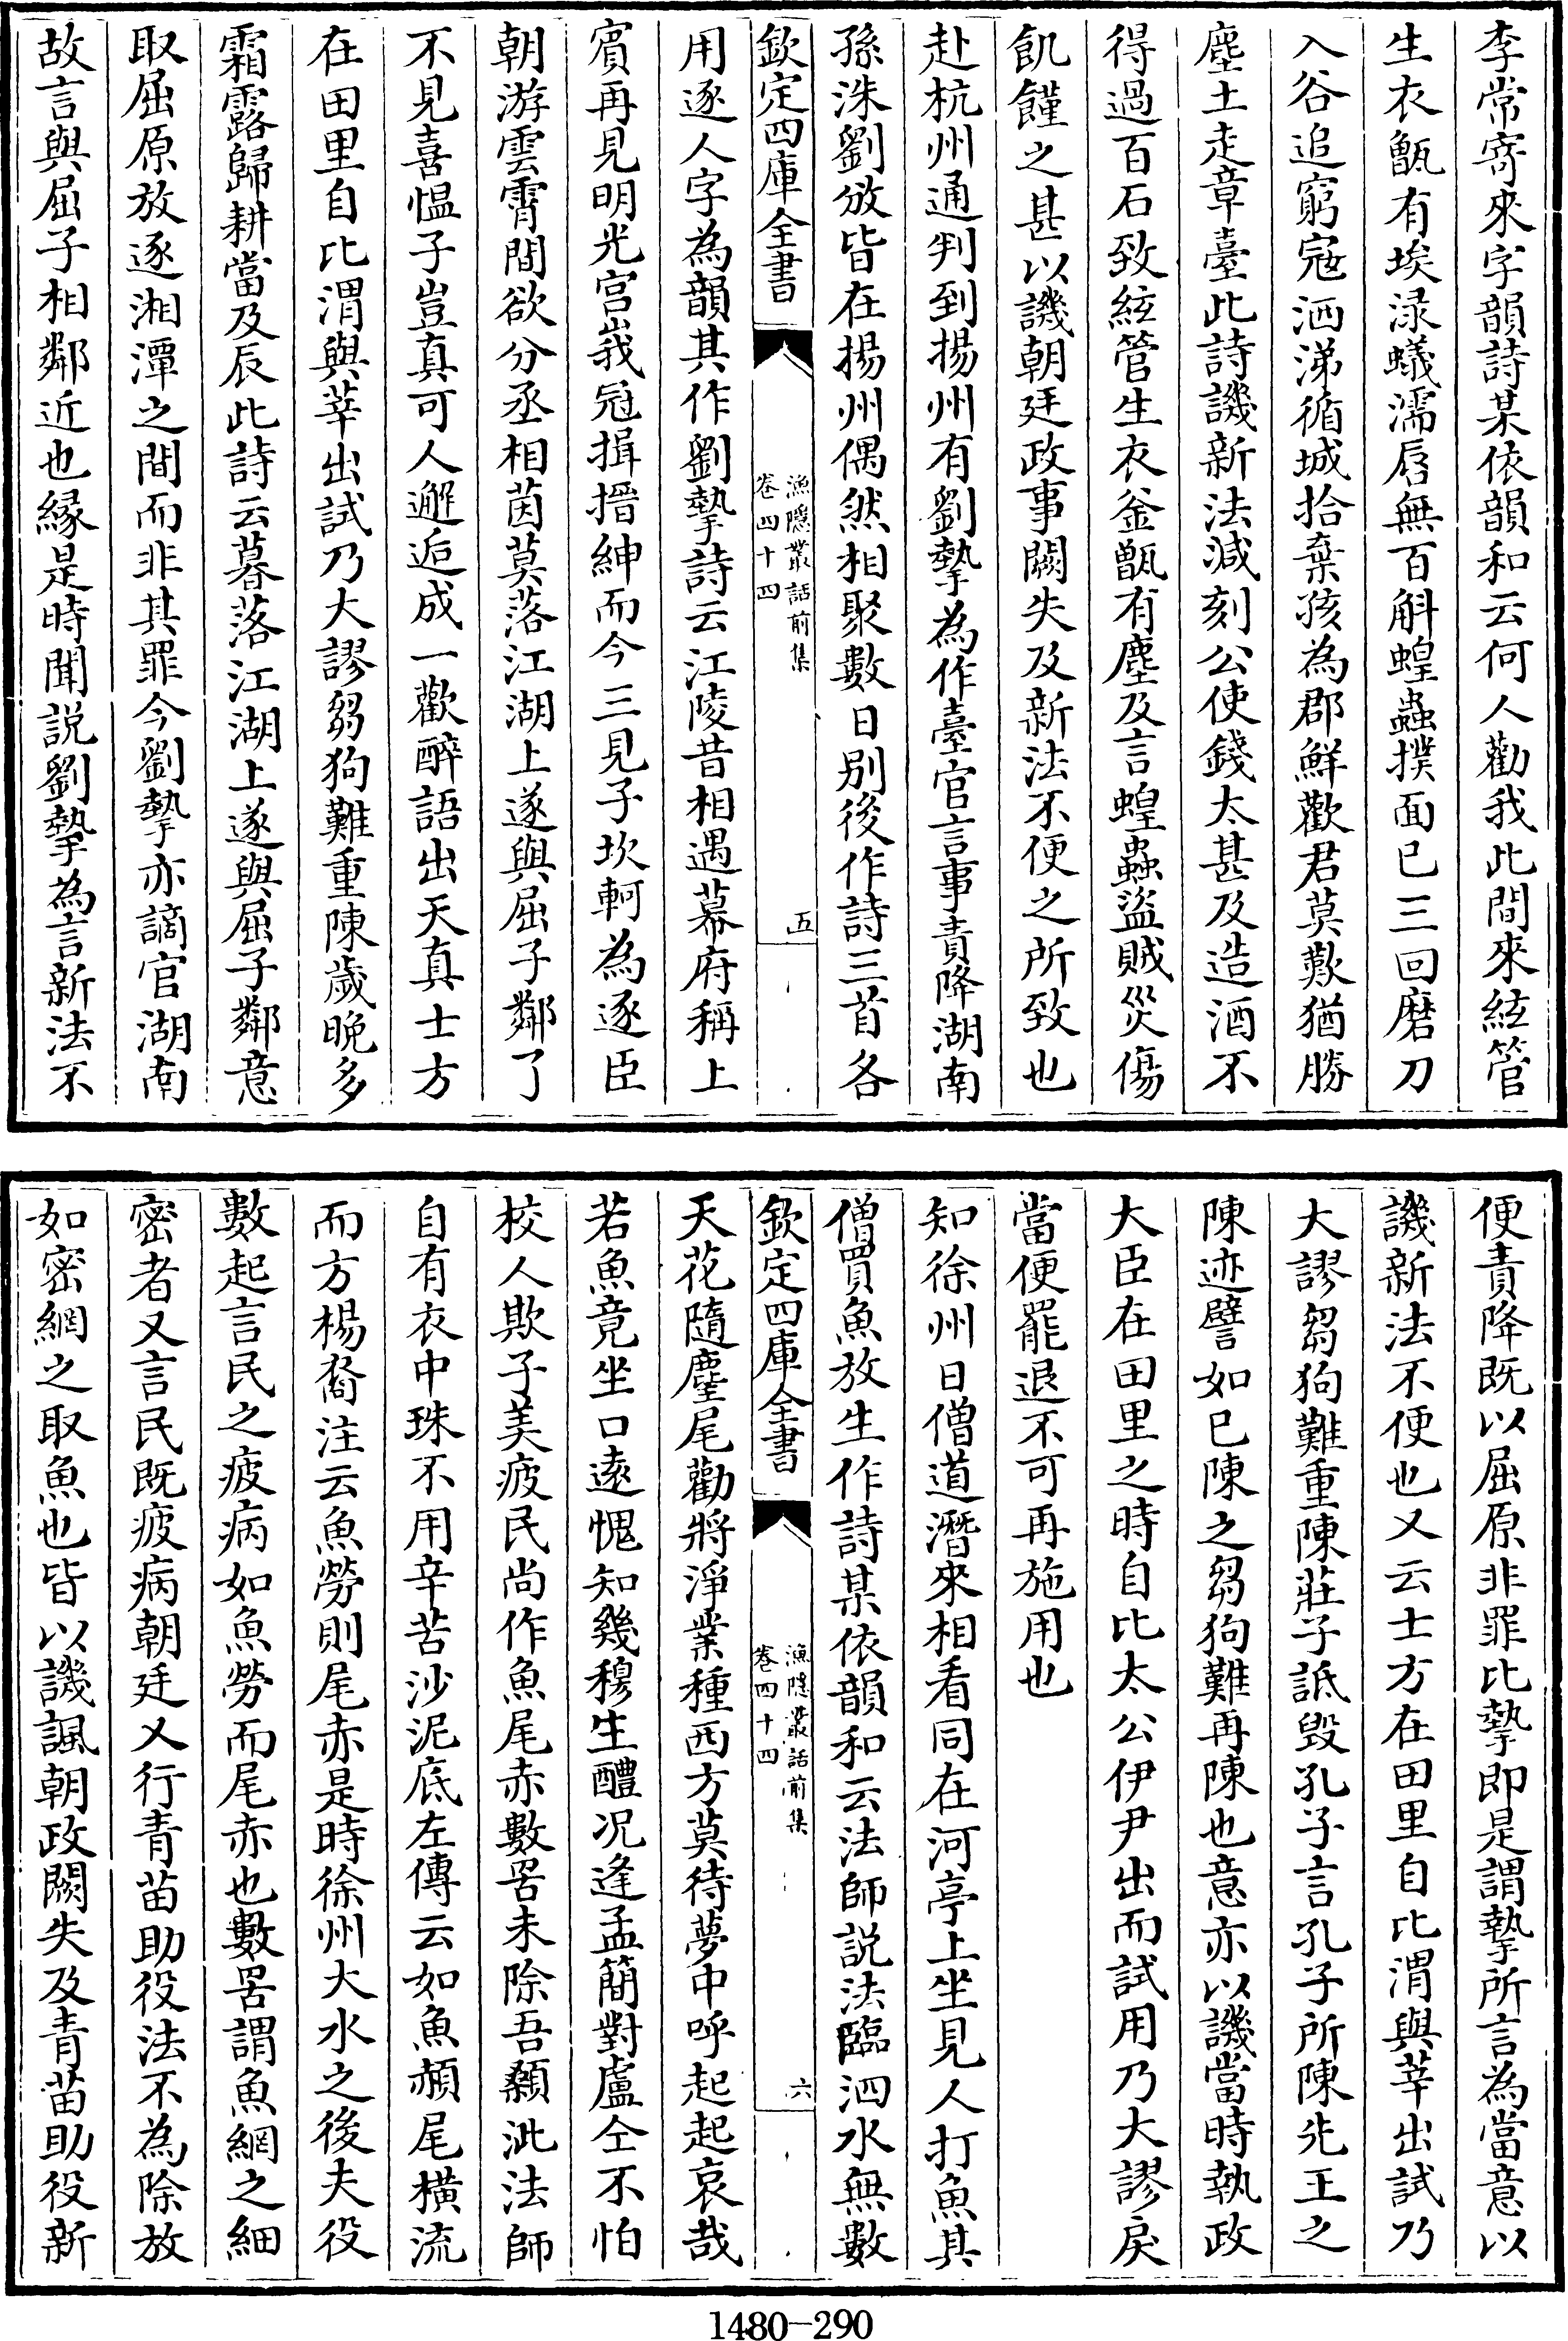 李常寄來字韻詩某依韻和云何人勸我此間來絃管
生衣甑有埃渌蟻濡唇無百斛蝗蟲撲面已三回磨刀
入谷追窮寇洒涕循城拾棄孩為郡鮮歡君莫歎猶勝
塵土走章臺此詩譏新法減刻公使錢太甚及造酒不
得過百石致絃管生衣釜甑有塵及言蝗蟲盜賊災傷
飢饉之甚以譏朝廷政事闕失及新法不便之所致也
赴杭州通判到揚州有劉摯為作臺官言事責降湖南
孫洙劉攽皆在揚州偶然相聚數日别後作詩三首各
欽定四庫全書
漁隱叢話前集
卷四十四
五
用逐人字為韻其作劉摯詩云江陵昔相遇幕府稱上
賓再見明光宫峩冠揖搢紳而今三見子坎軻為逐臣
朝游雲霄間欲分丞相茵莫落江湖上遂與屈子鄰了
不見喜愠子豈真可人邂逅成一歡醉語出天真士方
在田里自比渭與莘出試乃大謬芻狗難重陳歲晩多
霜露歸耕當及辰此詩云暮落江湖上遂與屈子鄰意
取屈原放逐湘潭之間而非其罪今劉摯亦謫官湖南
故言與屈子相鄰近也緣是時聞説劉摯為言新法不
便責降既以屈原非罪比摯即是謂摯所言為當意以
譏新法不便也又云士方在田里自比渭與莘出試乃
大謬芻狗難重陳莊子詆毁孔子言孔子所陳先王之
陳迹譬如已陳之芻狗難再陳也意亦以譏當時執政
大臣在田里之時自比太公伊尹出而試用乃大謬戾
當便罷退不可再施用也
知徐州日僧道潛來相看同在河亭上坐見人打魚其
僧買魚放生作詩某依韻和云法師説法臨泗水無數
欽定四庫全書
漁隱叢話前集
卷四十四
六
天花隨麈尾勸將淨業種西方莫待夢中呼起起哀哉
若魚竟坐口遠愧知幾穆生醴况逢孟簡對盧仝不怕
校人欺子美疲民尚作魚尾赤數罟未除吾顙泚法師
自有衣中珠不用辛苦沙泥底左傳云如魚赬尾横流
而方楊裔注云魚勞則尾赤是時徐州大水之後夫役
數起言民之疲病如魚勞而尾赤也數罟謂魚網之細
密者又言民既疲病朝廷又行青苗助役法不為除放
如密網之取魚也皆以譏諷朝政闕失及青苗助役新
1480-290